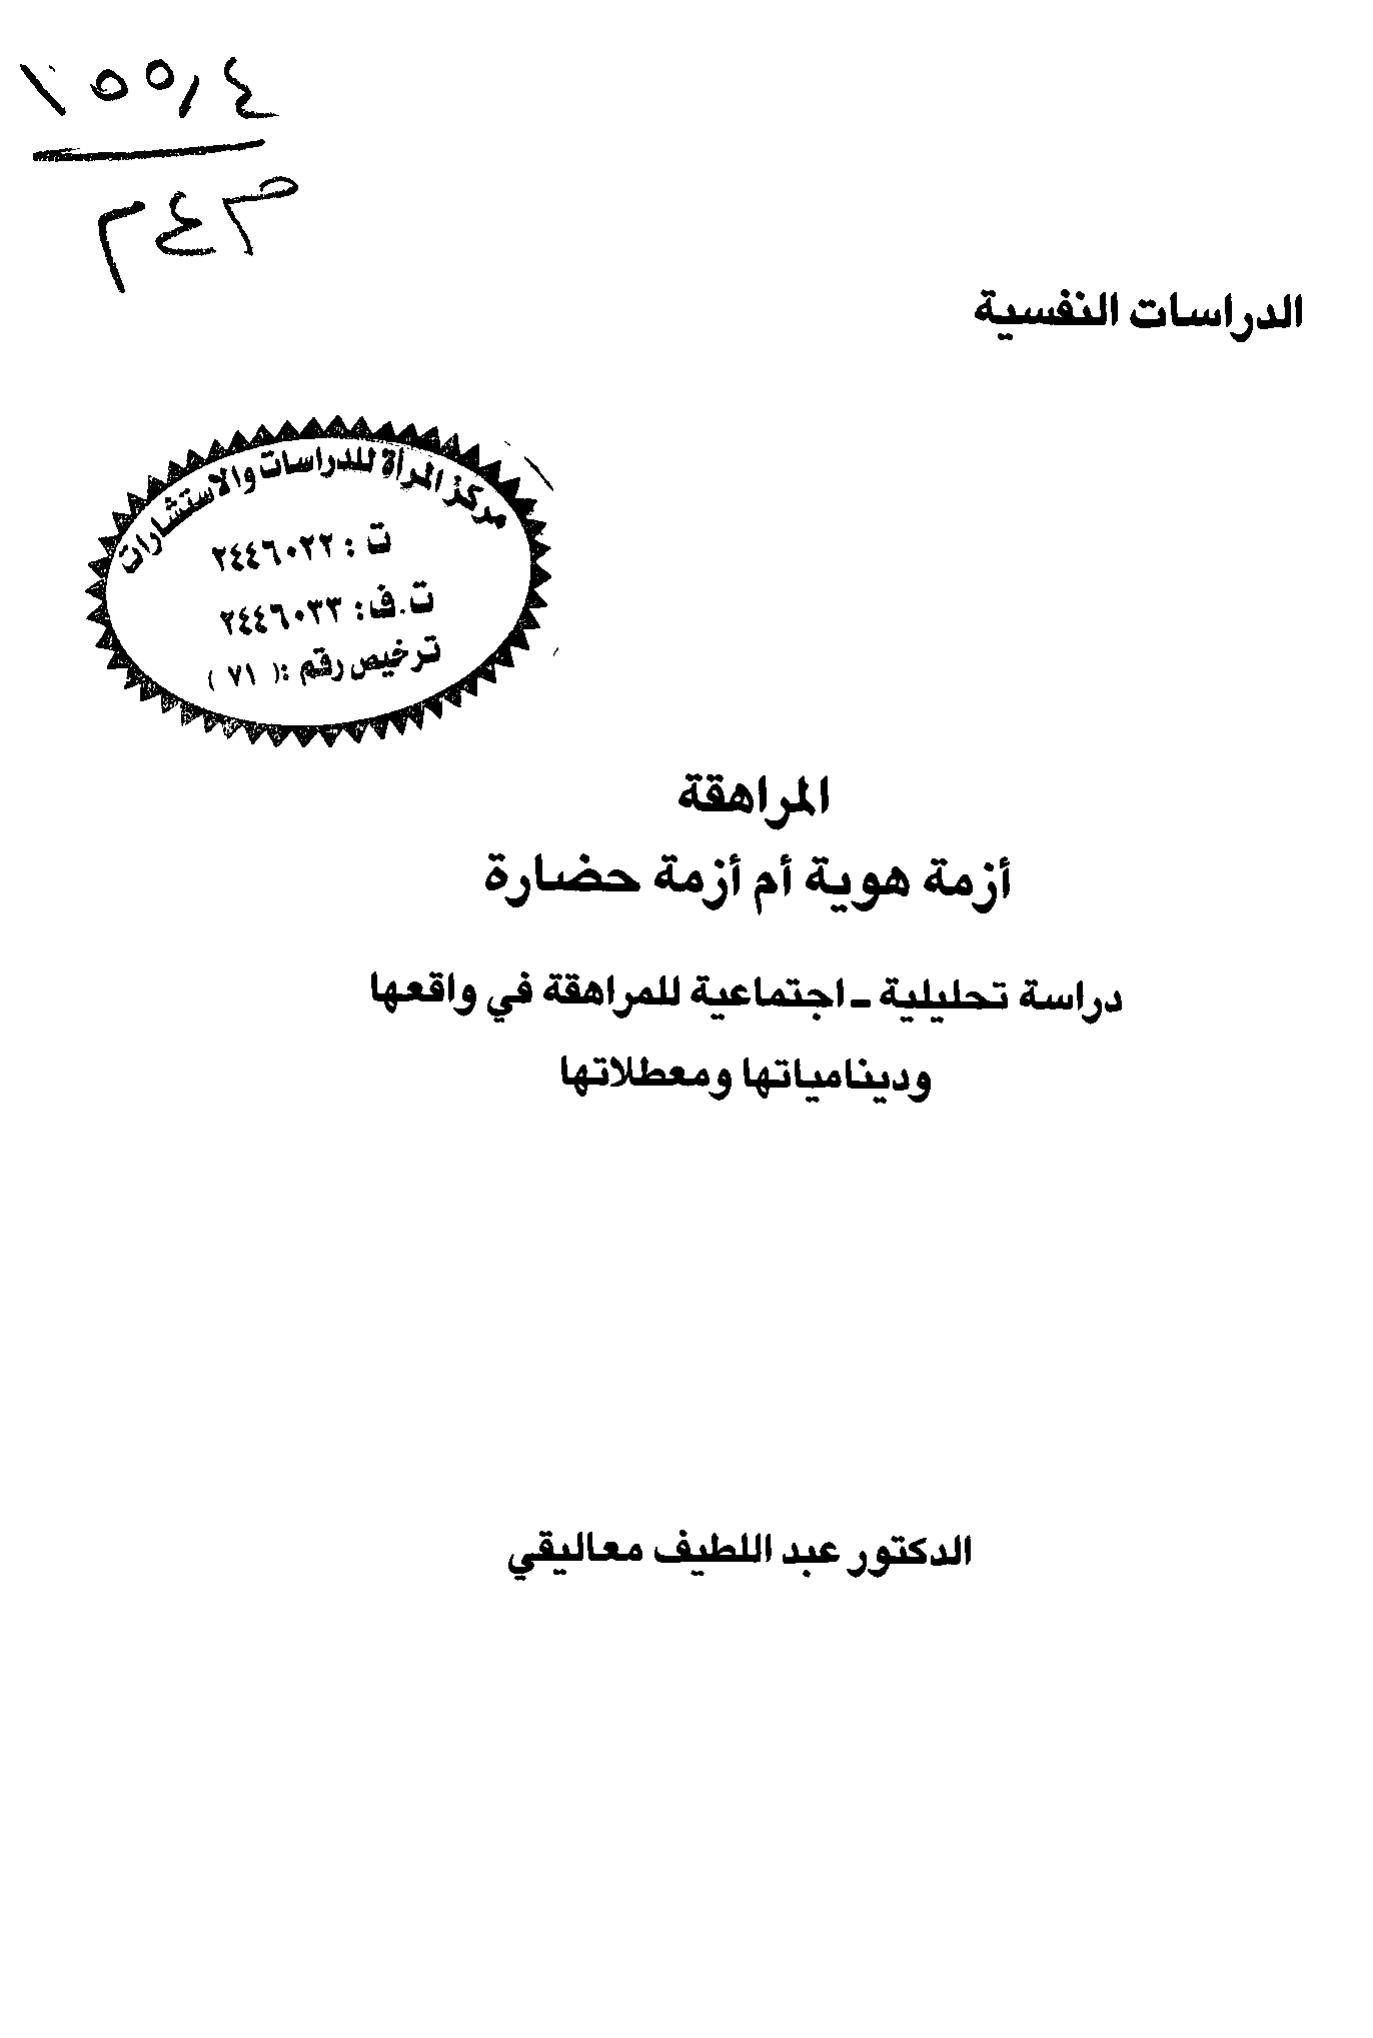 ١٥٥,٤
م ع م
الدراسات النفسية
مركز المرأة للدراسات والاستشارات
ت : ٢٤٤٦٠٢٢
ت.ف: ٢٤٤٦٠٣٣
ترخيص رقم :( ٧١ )
المراهقة
أزمة هوية أم أزمة حضارة
دراسة تحليلية ـ اجتماعية للمراهقة في واقعها
ودينامياتها ومعطلاتها
الدكتور عبد اللطيف معاليقي